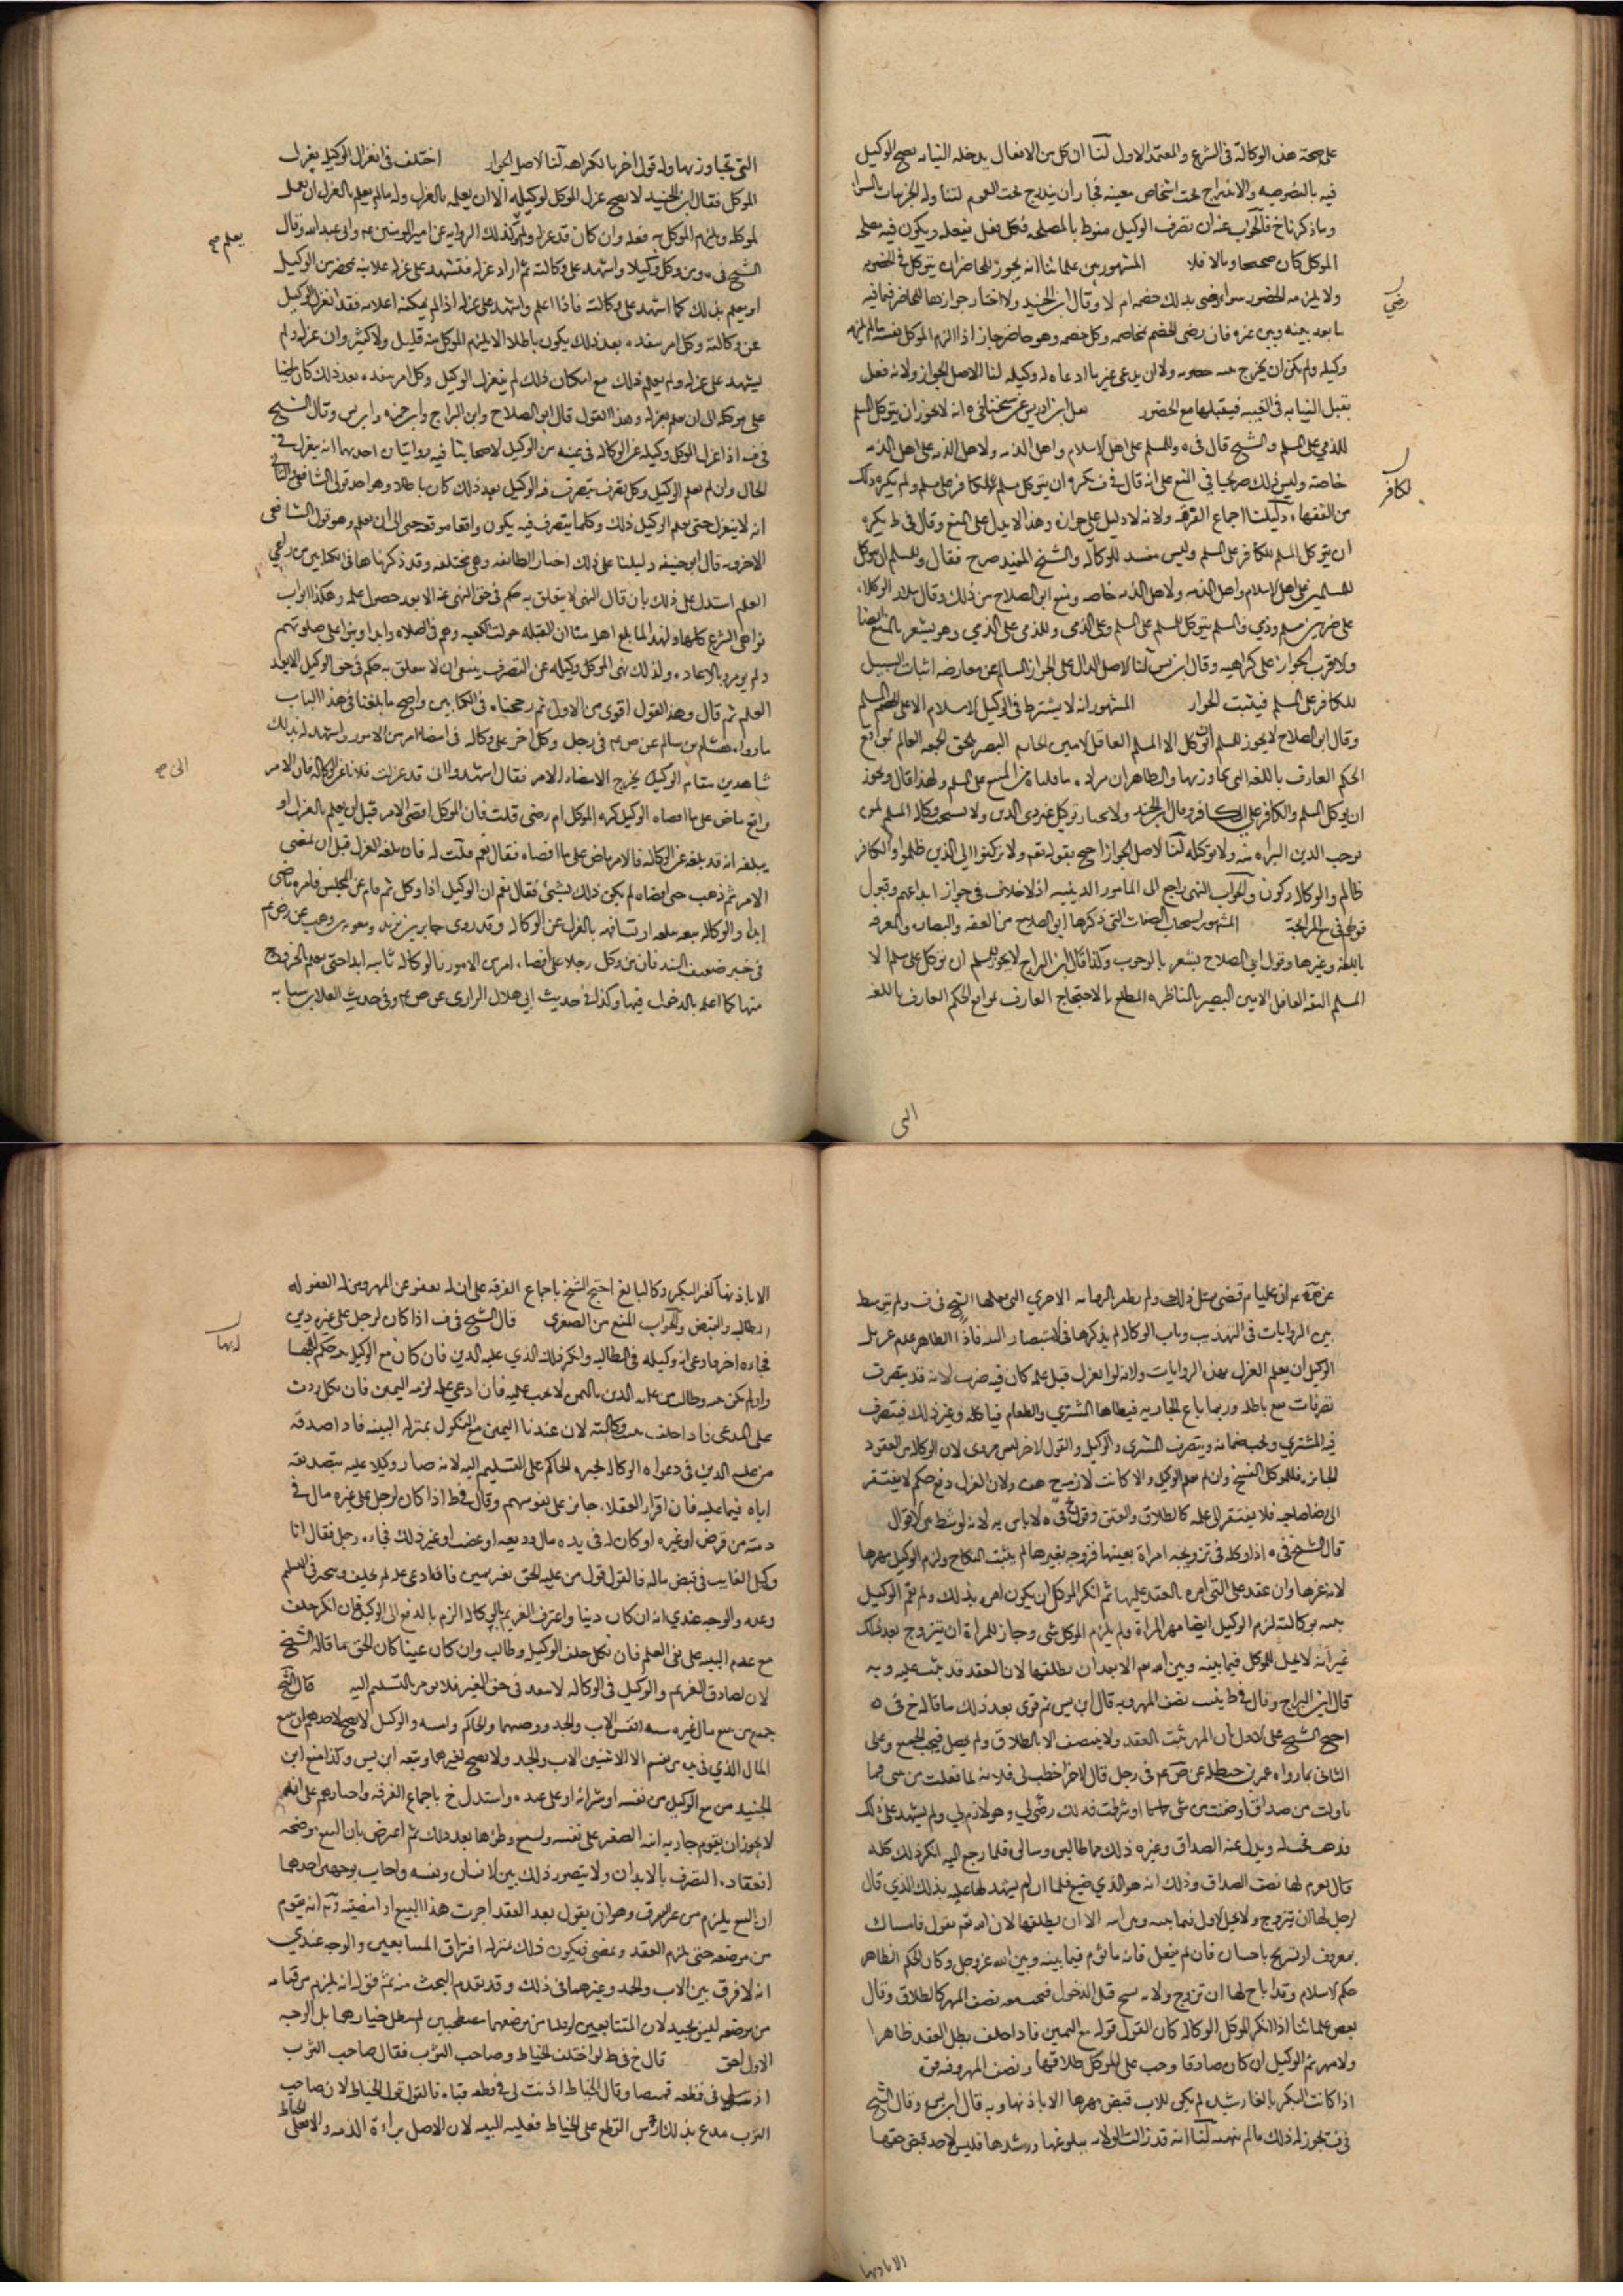 على صحة هذه الوكالة في الشرع والمعتمد الاول لنا ان كل من الافعال يدخله النيابة يصح التوكيل
فيه بالخصوصية والاندراج تحت اشخاص معينة فجاز ان يندرج تحت العموم لتناوله الجزئيات بالسواء
وما ذكرناخ فالجواب عنه ان تصرف الوكيل منوط بالمصلحة فكل فعل يفعله ويكون فيه مصلحة
الموكل كان صحيحا وما لا فلا المشهور بين علمائنا انه يجوز للحاضر ان يتوكل في الخصومة
ولا يلزمه الحضور سواء رضي بذلك خصمه ام لا وقال ابن الجنيد ولا اختار جوازها للحاضر فيما فيه
ما بعد بينه وبين غيره فان رضي الخصم بمخاصمة وكيل خصمه وهو حاضر جاز اذا الزم الموكل نفسه ما لم يلزمه
وكيله ولم يكن ان يخرج من ولا ان يدعي غير ما ادعاه له وكيله لنا الاصل الجواز ولانه فعل
يقبل النيابة في الغيبة فيقبلها مع الحضور نقل ابن ادريس عن شيخنا في ه انه لا يجوز ان يتوكل المسلم
للذمي على المسلم والشيخ قال في ه وللمسلم على اهل الاسلام واهل الذمة ولاهل الذمة على اهل الذمة
خاصة وليس ذلك صريحا في المنع على انه قال في ف يكره ان يتوكل مسلم للكافر على مسلم ولم يكره ذلك
من الفقهاء دليلنا اجماع الفرقة ولانه لا دليل على جوازه وهذا لا يدل على المنع وقال في ط يكره
ان يتوكل المسلم للكافر على المسلم وليس بمفسد للوكالة والشيخ المفيد صرح فقال وللمسلم ان يتوكل
للمسلمين على اهل الاسلام واهل الذمة ولاهل الذمة خاصة ومنع ابن الصلاح من ذلك وقال سلار الوكلاء
على ضربين مسلم وذمي فالمسلم يتوكل للمسلم على المسلم وعلى الذمي وللذمي على الذمي وهو يشعر بالمنع ايضا
والاقرب الجواز على كراهية وقال ابن لنا الاصل الدال على الجواز السالم عن معارضة اثبات السبيل
للكافر على المسلم فيثبت الجواز المشهور انه لا يشترط في الوكيل الاسلام الا على المسلم
وقال ابو الصلاح لا يجوز للمسلم ان يوكل الا المسلم العاقل الامين الحازم البصير بلحن الحجة العالم بمواقع
الحكم العارف باللغة التي يحاور بها والظاهر ان مراده ما قلناه من المنع على المسلم ولهذا قال ويجوز
ان يوكل المسلم والكافر على الكافر وقال ابن الجنيد ولا يختار توكيل غير ذي الدين ولا يستحب وكالة المسلم لمن
يوجب الدين البراءة منه ولا توكله لنا الاصل الجواز احتج بقوله تعم ولا تركنوا الى الذين ظلموا والكافر
ظالم والوكالة ركون والجواب النهي راجع الى الامور الدينية اذ لا خلاف في جواز ايداعهم وقبول
قولهم في المشهور استحباب الصفات التي ذكرها ابو الصلاح من الفقه والبصارة والمعرفة
باللغة وغيرها وقول ابي الصلاح يشعر بالوجوب وكذا قال ابن البراج لا يجوز للمسلم ان يتوكل على مسلم الا
المسلم الثقة العاقل الامين البصير بالمناظرة المطلع بالاحتجاج العارف بمواقع الحكم العارف باللغة
رضي
لكافر
التي
التي تحاور بها وله قول اخر بالكراهة لنا الاصل الجواز اختلف في انعزال الوكيل بعزل
الموكل فقال ابن الجنيد لا يصح عزل الموكل لوكيله الا ان يعلمه بالعزل وله ما لم يعلم بالعزل ان يعمل
لموكله ويلزم الموكل فعله وان كان قد عزله ولو كذلك الرواية عن امير المومنين ع م وابي عبد الله وقال
الشيخ في ه ومن وكل وكيلا واشهد على وكالته ثم اراد عزله فليشهد على عزله علانية بمحضر من الوكيل
او يعلمه بذلك كما اشهد على وكالته فاذا اعلمه واشهد على عزله اذا لم يمكنه اعلامه فقد انعزل الوكيل
عن وكالته وكل امر ينفذه بعد ذلك يكون باطلا لا يلزم الموكل منه قليل ولا كثير وان عزله ولم
يشهد على عزله ولم يعلم ذلك مع امكان ذلك لم ينعزل الوكيل وكل امر ينفذه بعد ذلك كان ماضيا
على موكله الى ان يعلم بعزله وهذا القول قال ابو الصلاح وابن البراج وابن حمزة وابن وقال الشيخ
في ف اذا عزل الموكل وكيله عن الوكالة في غيبة من الوكيل لاصحابنا فيه روايتان احديهما انه ينعزل في
الحال وان لم يعلم الوكيل وكل تصرف يتصرف فيه الوكيل بعد ذلك كان باطلا وهو احد قولي الشافعي والثاني
انه لا ينعزل حتى يعلم الوكيل ذلك وكلما يتصرف فيه يكون واقعا موقعه حتى الى ان يعلم وهو قول الشافعي
الاخر وبه قال ابو حنيفة دليلنا على ذلك اخبار الطائفة وهي مختلفة وقد ذكرناها في الكتابين ومن راعى
العلم استدل على ذلك بان قال النهي لا يتعلق به حكم في حق المنهي عنه الا بعد حصول علمه وهكذا ابواب
نواهي الشرع كلها ولهذا لما بلغ اهل قبا ان القبلة حولت الى الكعبة وهم في الصلاة داروا وبنوا على صلوتهم
ولم يؤمروا بالاعادة ولذلك نهي الموكل وكيله عن التصرف ينبغي ان لا يتعلق به حكم في حق الوكيل الا بعد
العلم ثم قال وهذا القول اقوى من الاول ثم رجحناه في الكتابين واصح ما بلغنا في هذا الباب
ما رواه هشام بن سالم عن ص ع م في رجل وكل اخر على وكالة في امضاء امر من الامور واشهد له بذلك
شاهدين فقام الوكيل يخرج لامضاء الامر فقال اشهدوا اني قد عزلت فلانا عن الوكالة فان الامر
واقع ماض على ما امضاه الوكيل كره الموكل ام رضي قلت فان الموكل امضى الامر قبل ان يعلم بالعزل او
يبلغه انه قد بلغه عن الوكالة فالامر ماض على ما امضاه فقال نعم قلت له فان بلغه العزل قبل ان يمضي
الامر ثم ذهب حتى امضاه لم يكن ذلك بشيء فقال نعم ان الوكيل اذا وكل ثم قام عن المجلس فامره ماض
ابدا والوكالة ثابتة يبلغه او يشافهه بالعزل عن الوكالة وقد روى جابر بن يزيد ومعوية بن وهب عن ص ع م
في خبر ضعيف السند فان من وكل رجلا على امضاء امر من الامور فالوكالة ثابتة ابدا حتى يعلمه بالخروج
منها كما اعلمه بالدخول فيها وكذا في حديث ابي هلال الرازي عن ص ع م وفي حديث العلا بن سيابة
يعلم صح
الى صح
عن ص ع م ان عليا ع م قضى بمثل ذلك ولم يظفر بالرواية الاخرى التي نقلها الشيخ في ف ولم يتوسط
بين الروايات في التهذيب وباب الوكالة لم يذكرها في الاستبصار البتة فاذا الظاهر عدم عزل
الوكيل ان يعلم العزل بهذه الروايات ولانه لو انعزل قبل علمه كان فيه ضرر لانه قد يتصرف
تصرفات تقع باطلة وربما باع الجارية فيطاها المشتري والطعام فياكله وغير ذلك فيتصرف
فيه المشتري ويجب ضمانه ويتصرف المشتري والوكيل والقول الاخر ليس بردي لان الوكالة من العقود
الجائزة فللموكل الفسخ وان لم يعلم الوكيل والا كانت لازمة هف ولان العزل رفع حكم لا يفتقر
الى رضا صاحبه فلا يفتقر الى علمه كالطلاق والعتق وقول خ في ه لا باس به لانه توسط من الاقوال
قال الشيخ في ه اذا وكله في تزويجه امراة بعينها فزوجه بغيرها لم يثبت النكاح ولزم الوكيل مهرها
لانه غرها وان عقد على التي امره بالعقد عليها ثم انكر الموكل ان يكون امره بذلك ولم يقم الوكيل
بينة بوكالته لزم الوكيل ايضا مهر المراة ولم يلزم الموكل شي وجاز للمراة ان تتزوج بعد ذلك
غير انه لا يحل للموكل فيما بينه وبين الله تعم الا بعد ان يطلقها لان العقد قد ثبت عليه وبه
قال ابن البراج وقال في ط يغرمه نصف المهر وبه قال ابن يس ثم قوى بعد ذلك ما قاله خ في ه
احتج الشيخ على الاول بان المهر يثبت بالعقد ولا ينتصف الا بالطلاق ولم يحصل فيجب الجميع وعلى
الثاني بما رواه عمر بن حنظلة عن ص ع م في رجل قال لاخر اخطب لي فلانة فما فعلت من شي مما
قاولت من صداق او ضمنت من شي او شرطت فذلك رضي لي وهو لازم لي ولم يشهد على ذلك
فذهب فخطب له وبذل عنه الصداق وغيره ذلك مما طالبوه وسالوه فلما رجع اليه انكر ذلك كله
قال يغرم لها نصف الصداق وذلك انه هو الذي ضيع حقها فلما ان لم يشهد لها عليه بذلك الذي قال
له حل لها ان تتزوج ولا يحل للاول فيما بينه وبين الله الا ان يطلقها لان الله تعم يقول فامساك
بمعروف او تسريح باحسان فان لم يفعل فانه ماثوم فيما بينه وبين الله عز وجل وكان الحكم الظاهر
حكم الاسلام وقد اباح لها ان تزوج ولانه فسخ قبل الدخول فيجب معه نصف المهر كالطلاق وقال
بعض علمائنا اذا انكر الموكل الوكالة كان القول قوله مع اليمين فاذا حلف بطل العقد ظاهرا
ولا مهر ثم الوكيل ان كان صادقا وجب على الموكل طلاقها ونصف المهر وفيه قوة
اذا كانت البكر بالغا رشيدة لم يكن للاب قبض مهرها الا باذنها وبه قال ابن يس وقال الشيخ
في ف يجوز له ذلك ما لم ينهه لنا انه قد زالت الولاية ببلوغها ورشدها فليس لاحد قبض حقها
الا باذنها
الا باذنها كغير البكر وكالبالغ احتج الشيخ باجماع الفرقة على ان له يعفو عن المهر ومن له العفو له
المطالبة والقبض والجواب المنع من الصغرى قال الشيخ في ف اذا كان لرجل على غيره دين
فجاءه اخر وادعى انه وكيله في المطالبة وانكر ذلك الذي عليه الدين فان كان مع الوكيل بينة حكم له بها
وان لم يكن معه وطالب من عليه الدين باليمين لا يجب عليه فان ادعى علمه لزمه اليمين فان نكل ردت
على المدعي فاذا حلف ثبتت وكالته لان عندنا اليمين مع النكول بمنزلة البينة فاذا صدقه
من عليه الدين في دعواه الوكالة يجبره الحاكم على التسليم اليه لانه صار وكيلا عليه بتصديقه
اياه فيما عليه فان اقرار العقلاء جائز على نفوسهم وقال في ط اذا كان لرجل على غيره مال في
ذمته من قرض او غيره او كان له في يده مال وديعة او غصب او غير ذلك فجاءه رجل فقال انا
وكيل الغايب في قبض ماله فالقول قول من عليه الحق بغير يمين فاذا ادعى علمه لم يحلف
وعدمه والوجه عندي انه ان كان دينا واعترف الغريم بالوكالة الزم بالدفع الى الوكيل فان انكر حلف
مع عدم البينة على نفي العلم فان نكل حلف الوكيل وطالب وان كان عينا كان الحق ما قاله الشيخ
لان تصادق الغريم والوكيل في الوكالة لا ينفذ في حق الغير فلا يؤمر بالتسليم اليه قال الشيخ
جميع من يبيع مال غيره ستة انفس الاب والجد ووصيهما والحاكم وامينه والوكيل لا يصح لاحدهم ان يبيع
المال الذي في يده من نفسه الا لاثنين الاب والجد ولا يصح لغيرهما وتبعه ابن يس وكذا منع ابن
الجنيد من بيع الوكيل من نفسه او شرائه او على عبده واستدل خ باجماع الفرقة واخبارهم على انه
لا يجوز ان يقوم جارية ابنه الصغير على نفسه ويستبيح وطئها بعد ذلك ثم اعترض بان البيع وضحه
انعقاده التصرف بالابدان ولا يتصور ذلك بين الانسان ونفسه واجاب بوجهين احدهما
ان البيع يلزم من غير تفرق وهو ان يقول بعد العقد اجزت هذا البيع او امضيته وثم انه يقوم
من موضعه حتى يلزم العقد ويمضي فيكون ذلك بمنزلة افتراق المتبايعين والوجه عندي
انه لا فرق بين الاب والجد وغيرهما في ذلك وقد تقدم البحث منه ثم قوله انه يلزم من قيامه
من موضعه ليس بجيد لان المتبايعين لو قاما من موضعهما مصطحبين لم يبطل خيارهما بل الوجه
الاول الحق قال خ في ط لو اختلف الخياط وصاحب الثوب فقال صاحب الثوب
اذنت لك في قطعه قميصا وقال الخياط اذنت لي في قطعه قباء فالقول قول الخياط لان صاحب
الثوب مدع بذلك ارش القطع على الخياط فعليه البينة لان الاصل براءة الذمة والاصل
الخياط
له بها